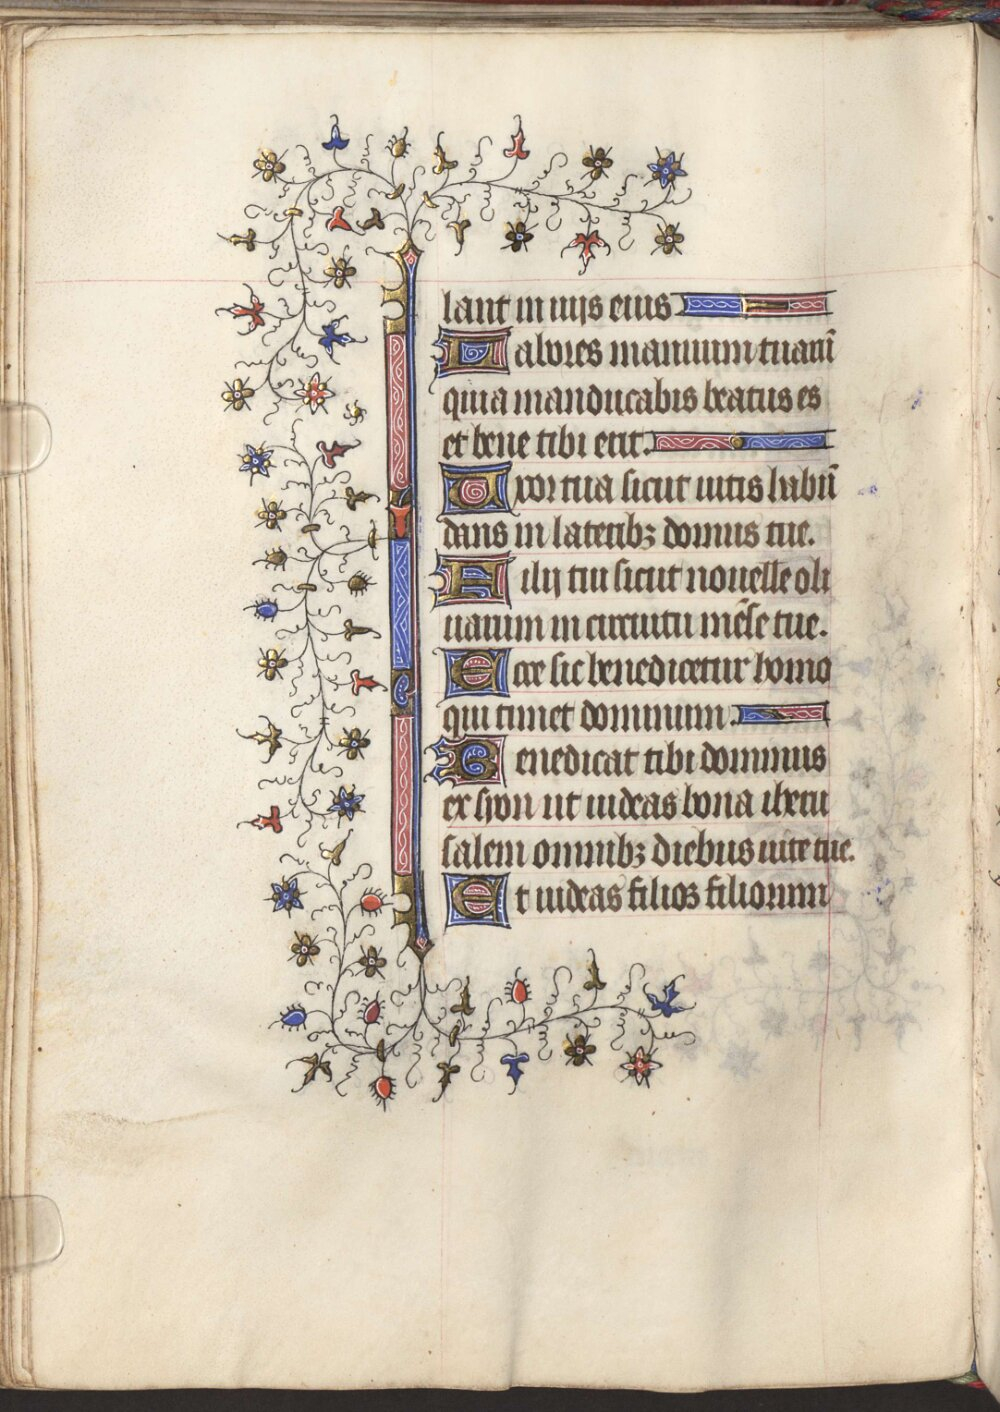 lant in uijs eius
Labores manuum tuarū
quia manducabis beatus es
et bene tibi erit.
Uxor tua sicut uitis habū
dans in lateribꝫ domus tue.
Filij tui sicut nouelle oli
uarum in circuitu mēse tue.
Ecce sic benedicetur homo
qui timet dominum.
Benedicat tibi dominus
ex syon ut uideas bona iheru
salem omnibꝫ diebus uite tue.
Et uideas filios filiorum